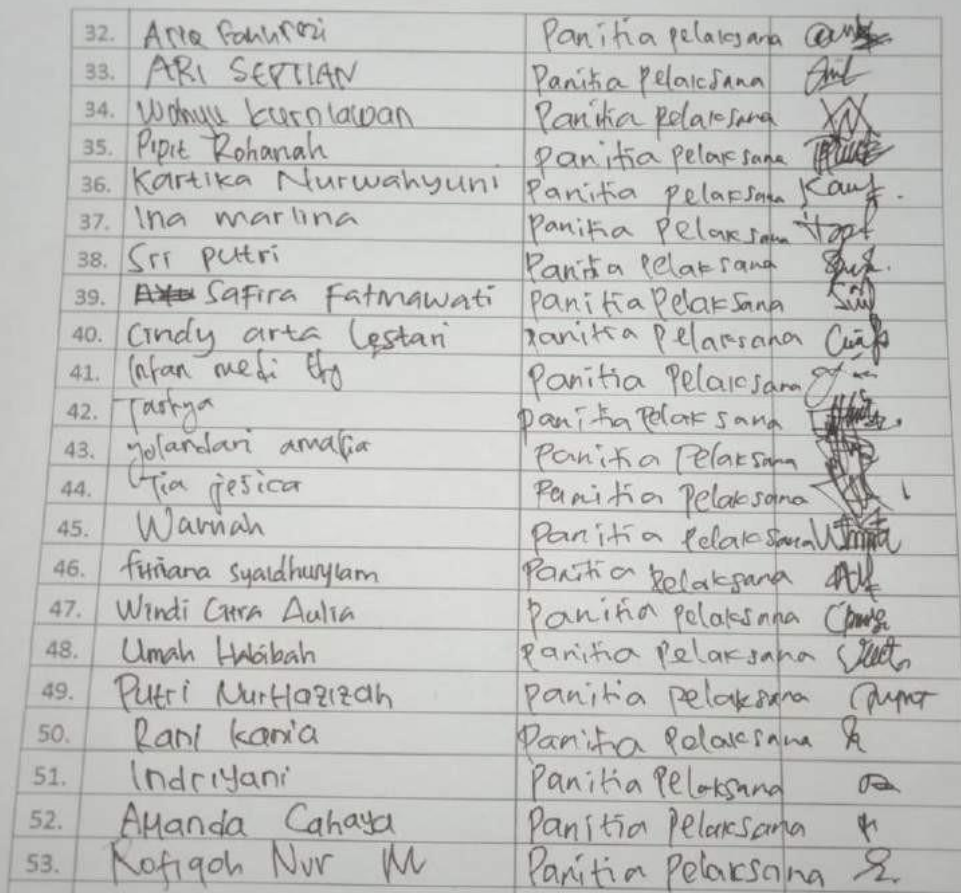 32. Aria Fahrrozi Panitia pelaksana
33. ARI SEPTIAN Panitia Pelaksana
34. Wahyu kurniawan Panitia pelaksana
35. Pipit Rohanah Panitia Pelaksana
36. Kartika Nurwahyuni Panitia pelaksana
37. Ina marlina Panitia Pelaksana
38. Sri putri Panitia Pelaksana
39. Safira Fatmawati Panitia Pelaksana
40. Cindy arta Lestari Panitia Pelaksana
41. Intan medi Panitia Pelaksana
42. Taskya Panitia Pelaksana
43. yolandari amalia Panitia Pelaksana
44. Tia jesica Panitia Pelaksana
45. Warnah Panitia Pelaksana
46. Panitia Pelaksana
47. Windi Citra Aulia Panitia Pelaksana
48. Umah Habibah Panitia Pelaksana
49. Putri NurHazizah Panitia Pelaksana
50. Rani kania Panitia Pelaksana
51. Indriyani Panitia Pelaksana
52. AManda Cahaya Panitia Pelaksana
53. Rofiqoh Nur M Panitia Pelaksana